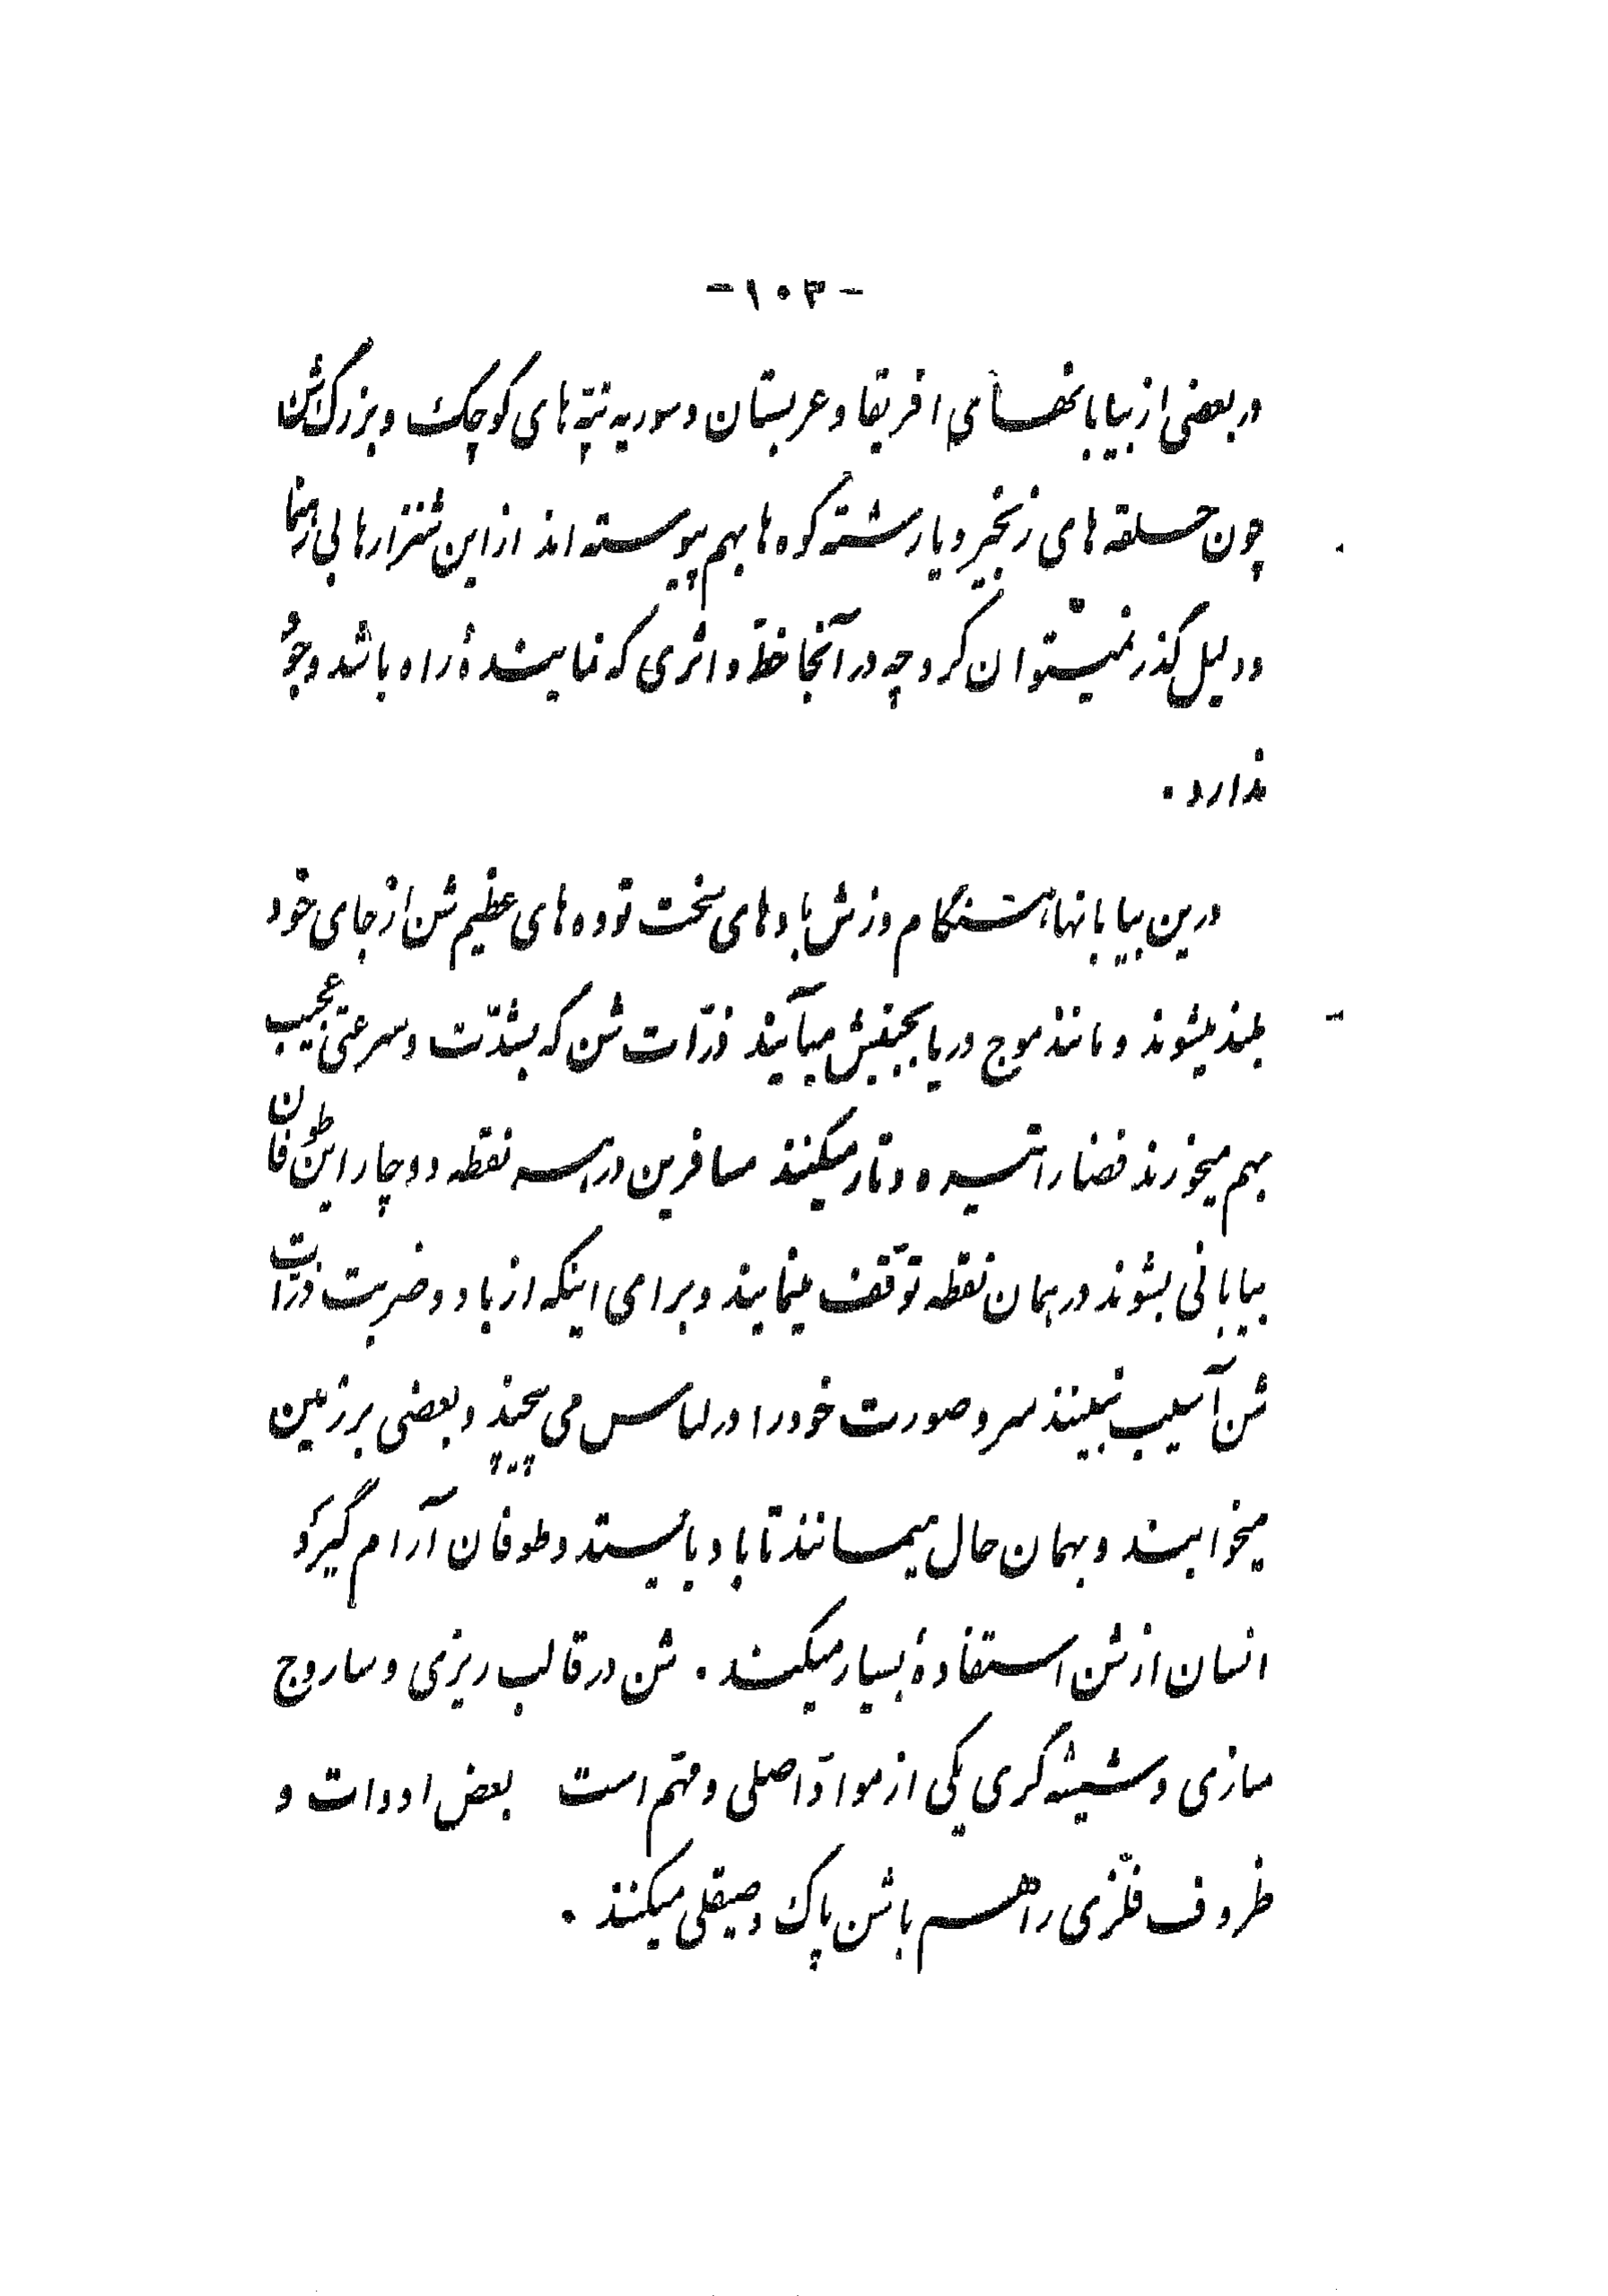 -۱۰۳-
در بعضی از بیابانهای افریقا و عربستان و سوریه تپّه های کوچک و بزرگ شن
چون حلقه های زنجیر و یا رشته کوه ها بهم پیوسته اند از این شنزارها بی رهنما
و دلیل گذر نمیتوان کرد چه در آنجا خطّ و اثری که نمایندهٔ راه باشد وجود
ندارد .
درین بیابانها هنگام وزش بادهای سخت توده های عظیم شن از جای خود
بلند میشوند و مانند موج دریا بجنبش میآیند ذرّات شن که بشدّت و سرعتی عجیب
بهم میخورند فضا را تیره و تار میکنند مسافرین در هر نقطه دوچار این طوفان
بیابانی بشوند در همان نقطه توّقف مینمایند و برای اینکه از باد و ضربت ذرّات
شن آسیب نبینند سر و صورت خود را در لباس می پیچند و بعضی بر زمین
میخوابند و بهمان حال میمانند تا باد بایستد و طوفان آرام گیرد
انسان از شن استفادهٔ بسیار میکند . شن در قالب ریزی و ساروج
سازی و شیشه گری یکی از موادّ اصلی و مهّم است بعض ادوات و
ظروف فلّزی را هم با شن پاک و صیقلی میکنند .